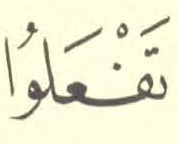 تَفْعَلُوا